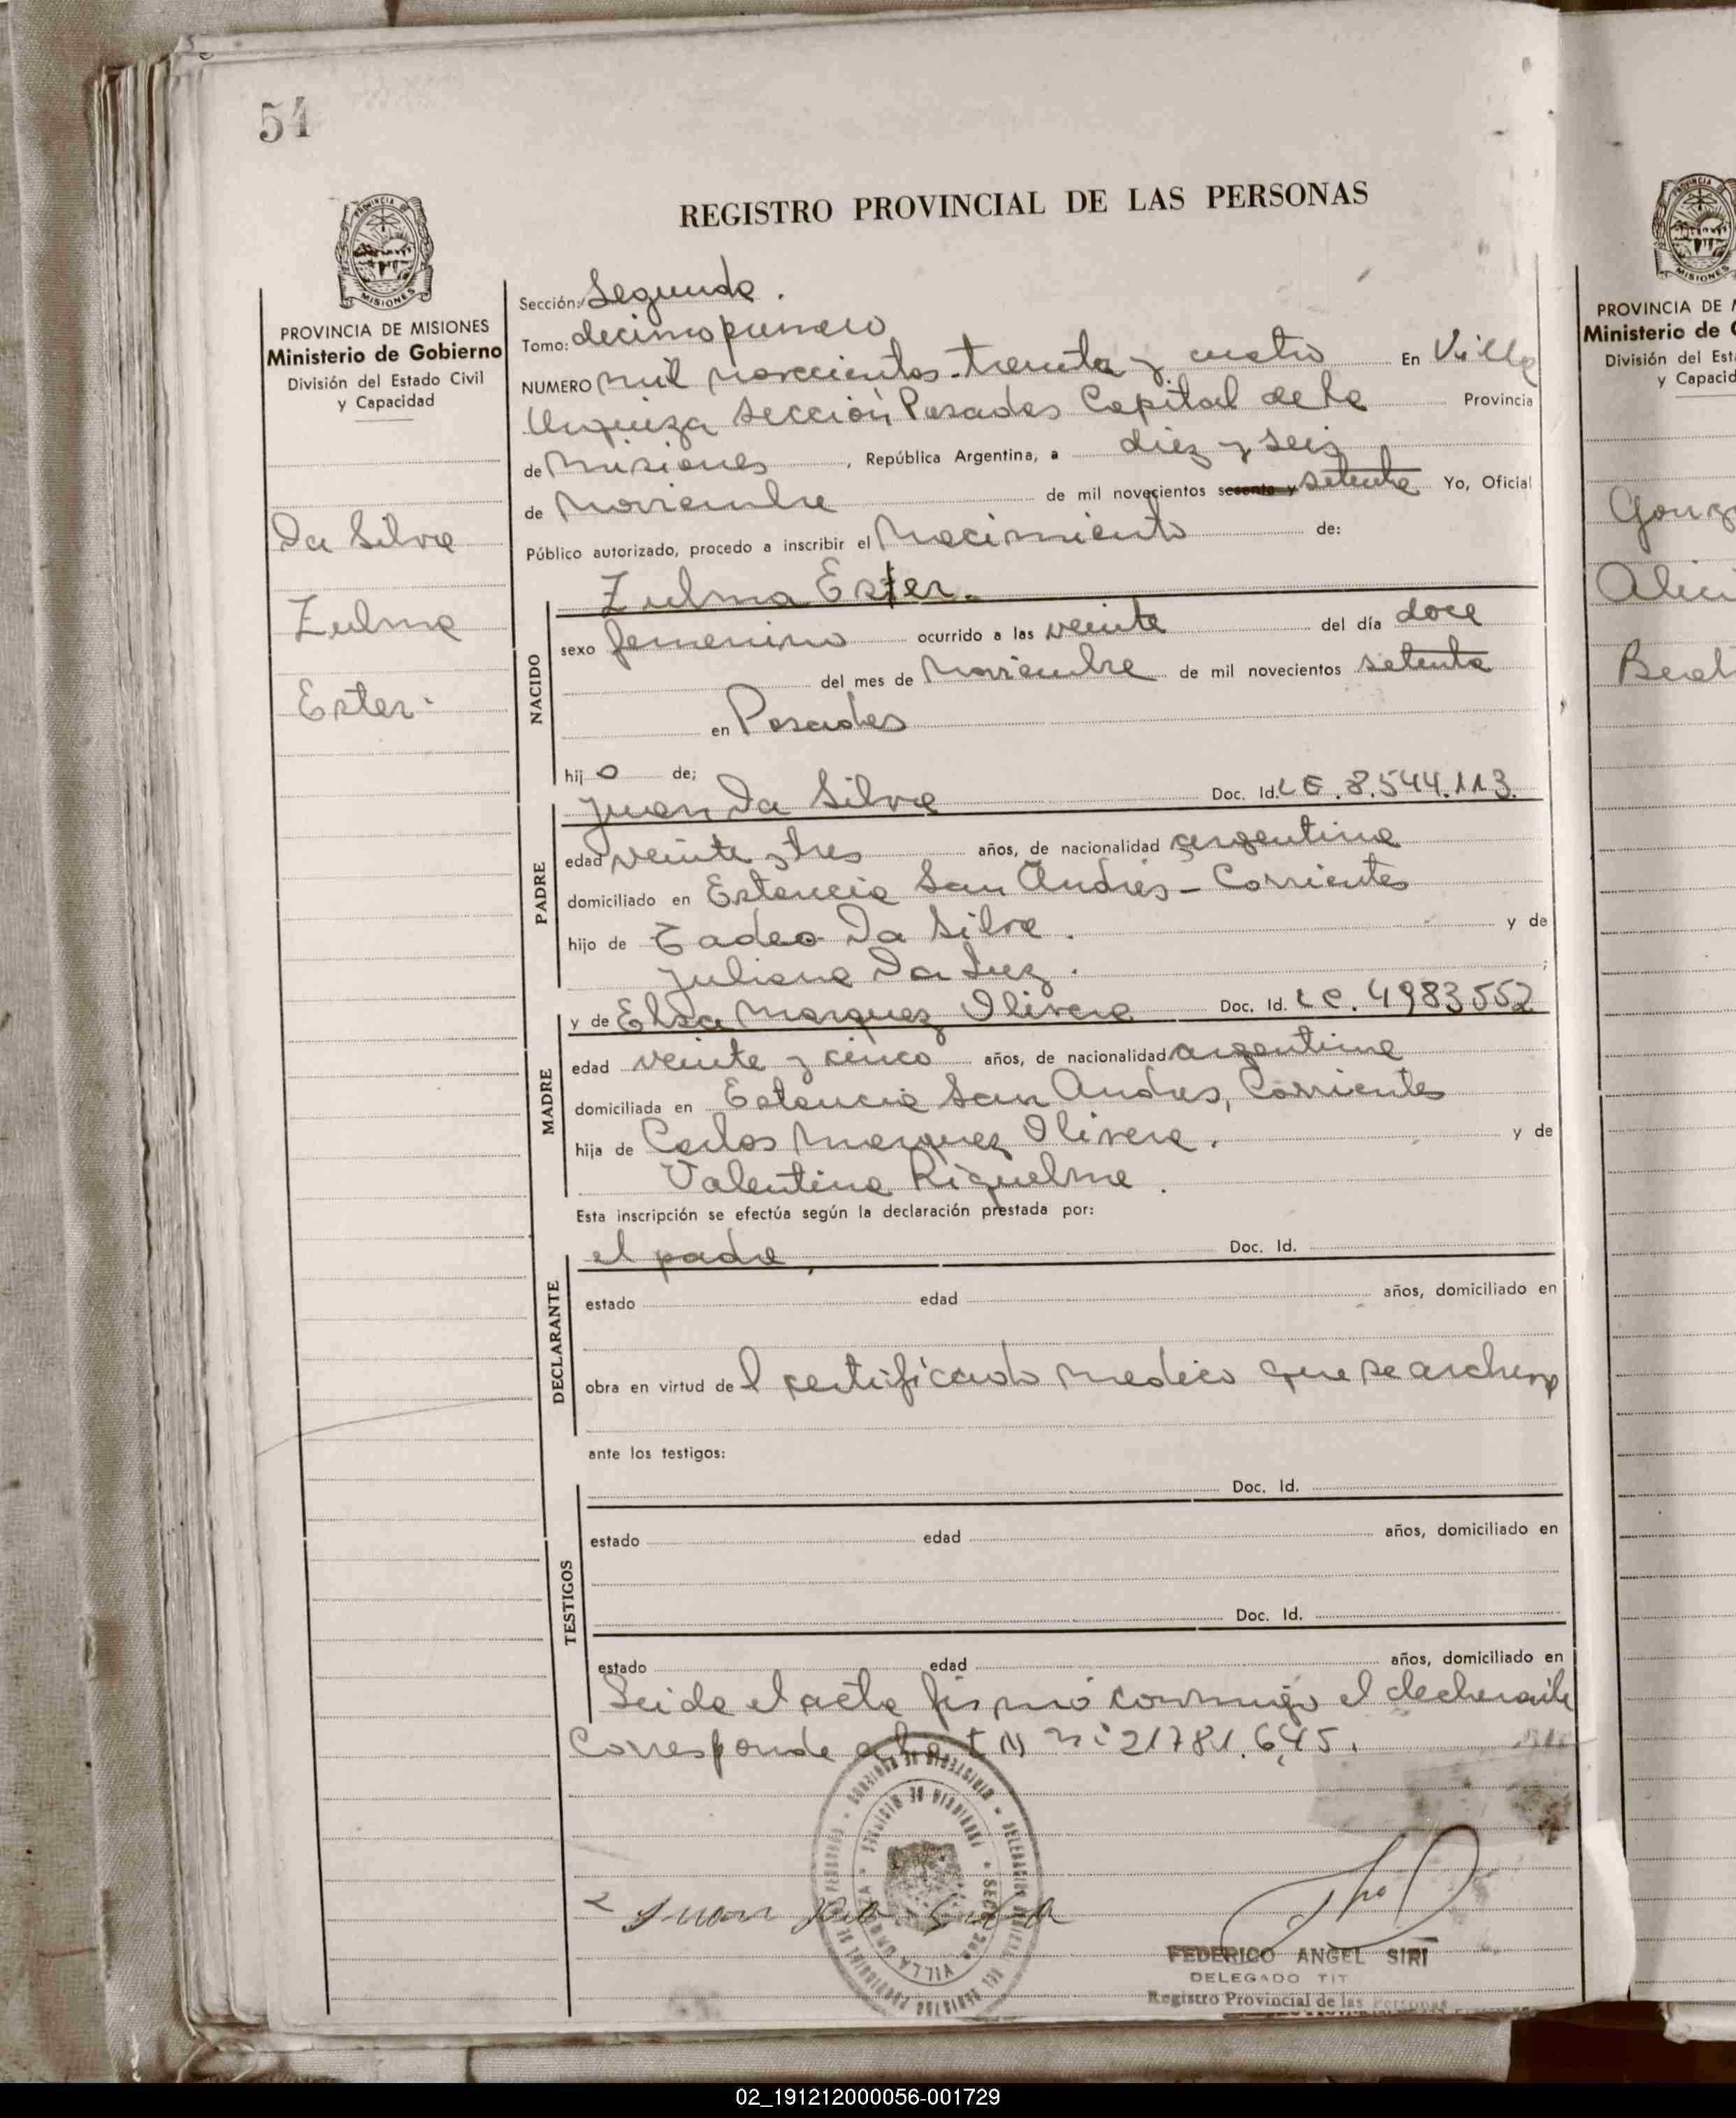 54
REGISTRO PROVINCIAL DE LAS PERSONAS
PROVINCIA DE MISIONES
Ministerio de Gobierno
División del Estado Civil
y Capacidad
Da Silva
Zulma
Ester.
Sección: Segunda.
Tomo: decimo primero
NUMERO mil novecientos treinta y cuatro En Villa
Urquiza Sección Posadas Capital de la Provincia
de Misiones, República Argentina, a diez y seis
de Noviembre de mil novecientos sesenta y setenta Yo, Oficial
Público autorizado, procedo a inscribir el Nacimiento de:
Zulma Ester.
NACIDO
sexo femenino ocurrido a las veinte del día doce
del mes de Noviembre de mil novecientos setenta
en Posadas
hijo de;
PADRE
Juan Da Silva Doc. Id. LE. 8.544.113.
edad veinte y tres años, de nacionalidad argentina
domiciliado en Estancia San Andrés - Corrientes
hijo de Tadeo Da Silva. y de
Juliana Da Luz. ;
MADRE
y de Elsa Marquez Olivera Doc. Id. LC. 4983552
edad veinte y cinco años, de nacionalidad argentina
domiciliada en Estancia San Andres, Corrientes
hija de Carlos Marquez Olivera. y de
Valentina Riquelme.
Esta inscripción se efectúa según la declaración prestada por:
DECLARANTE
el padre, Doc. Id.
estado edad años, domiciliado en
obra en virtud del certificado medico que se archiva
ante los testigos:
TESTIGOS
Doc. Id.
estado edad años, domiciliado en
Doc. Id.
estado edad años, domiciliado en
Leida el acta firmó conmigo el declarante
Corresponde a la nº 21781.645.
Juan Da Silva
VILLA URQUIZA
FEDERICO ANGEL SIRI
DELEGADO TIT
Registro Provincial de las Personas
PROVINCIA DE
Ministerio de G
División del Est
y Capacid
Gonz
Alici
Beat
02_191212000056-001729